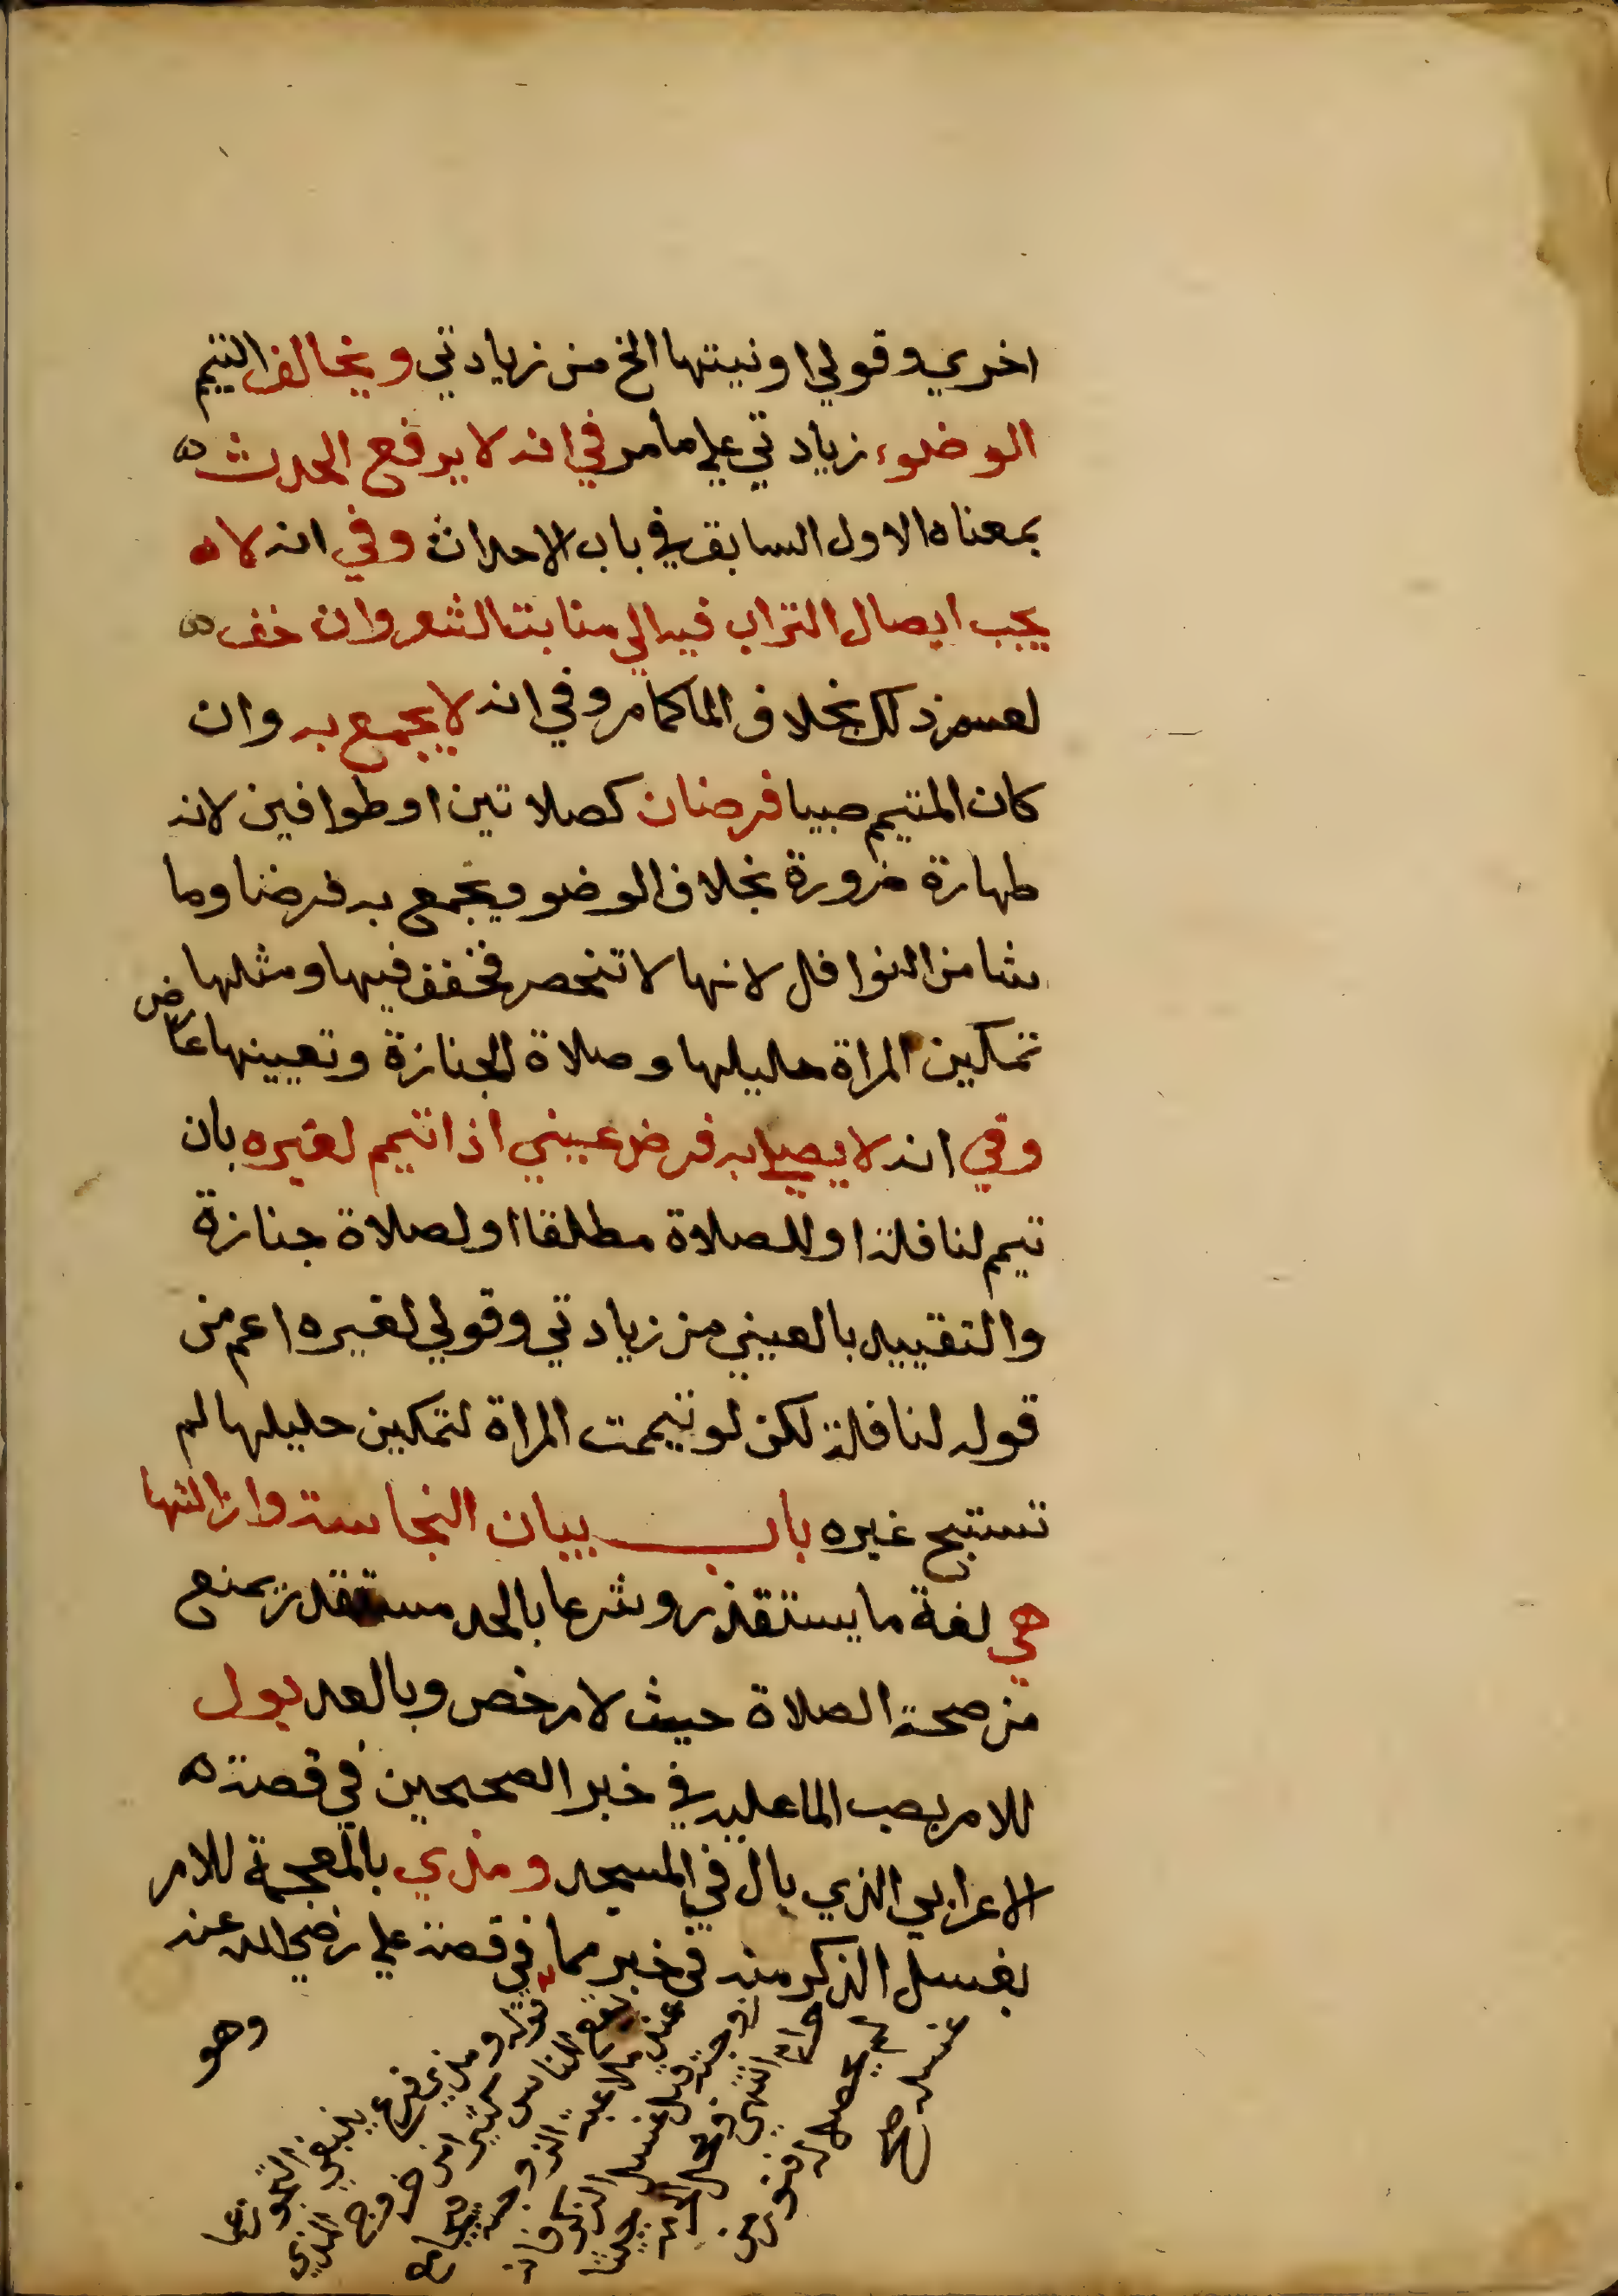 اخري وقولي او نيتها الخ من زيادتي ويخالف التيمم
الوضوء زيادتي علي ما مر في انه لا يرفع الحدث ه
بمعناه الاول السابق في باب الاحداث وفي انه لا ه
يجب ايصال التراب فيه الي منابت الشعر وان خف ه
لعسر ذلك بخلاف الما كما مر وفي انه لا يجمع به وان
كان المتيمم صبيا فرضان كصلاتين او طوافين لانه
طهارة ضرورة بخلاف الوضو ويجمع به فرضا وما
شا من النوافل لانها لا تنحصر فخفف فيها ومثلها
تمكين المراة حليلها وصلاة الجنازة وتعيينها عارض
وفي انه لا يصلي به فرض عيني اذا تيمم لغيره بان
تيمم لنافلة او للصلاة مطلقا او لصلاة جنازة
والتقييد بالعيني من زيادتي وقولي لغيره اعم من
قوله لنافلة لكن لو تيممت المراة لتمكين حليلها لم
تستبح غيره باب بيان النجاسة وازالتها
هي لغة ما يستقذر وشرعا بالحد مستقذر يمنع
من صحة الصلاة حيث لا مرخص وبالعد بول
للامر بصب الما عليه في خبر الصحيحين في قصة ه
الاعرابي الذي بال في المسجد ومذي بالمعجمة للامر
بغسل الذكر منه في خبرهما في قصة علي رضي الله عنه
وهو
قوله ومذي فرع ينبغي
بعض الناس كثيرا من خروج المذي
عند ملاعبة الزوجة
زوجته قبل غسل الذكر فانه
حرام
لم يحصل له فتور من
غسله صح